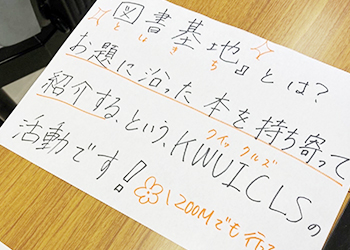 『図書基地』とは？
としょきち
お題に沿った本を持ち寄って
紹介する、という、KWUICLSの
クイックルズ
活動です！
ZOOMでも行